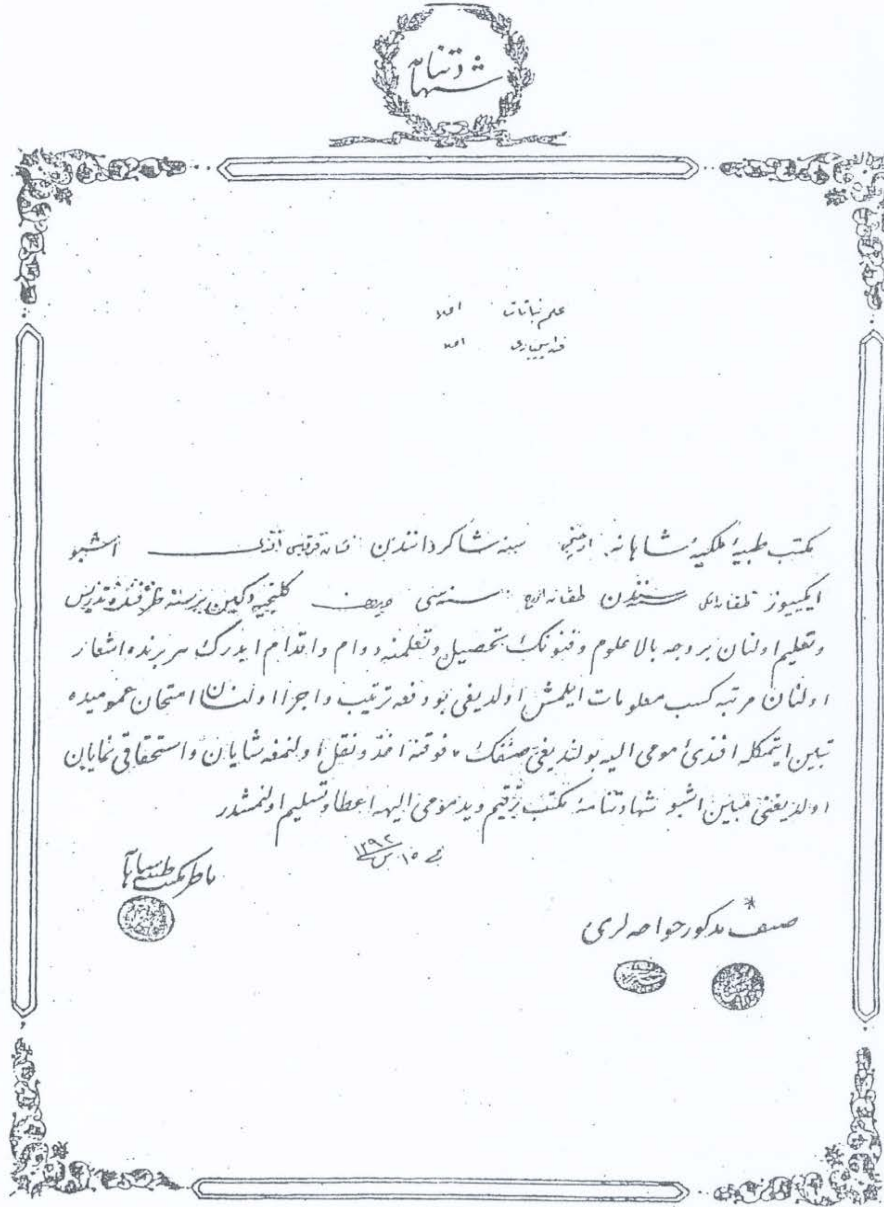 شهادتنامه
علم نباتات اعلا
اعلا
مكتب طبيهٔ ملكيهٔ شاهانه سنه شاكردانندن افندى اشبو
ايكيوز طقسان سنه سندن طقسان سنه سى كلنجيه دكين برسنه ظرفنده تدريس
وتعليم اولنان بروجه بالا علوم وفنونك تحصيل وتعلمنه دوام واقدام ايدرك هر برنده اشعار
اولنان مرتبه كسب معلومات ايلمش اولديغى بو دفعه ترتيب واجرا اولنان امتحان عموميده
تبين ايتمكله افندئ مومى اليه بولنديغى صنفك مافوقنه اخذ ونقل اولنمغه شايان واستحقاقى نمايان
اولديغنى مبين اشبو شهادتنامهٔ مكتب ترقيم ويد مومى اليهه اعطا وتسليم اولنمشدر
فى ١٥ سنه ١٢٩٢
ناظر مكتب طبيه شاهانه
صنف مذكور خواجه لرى